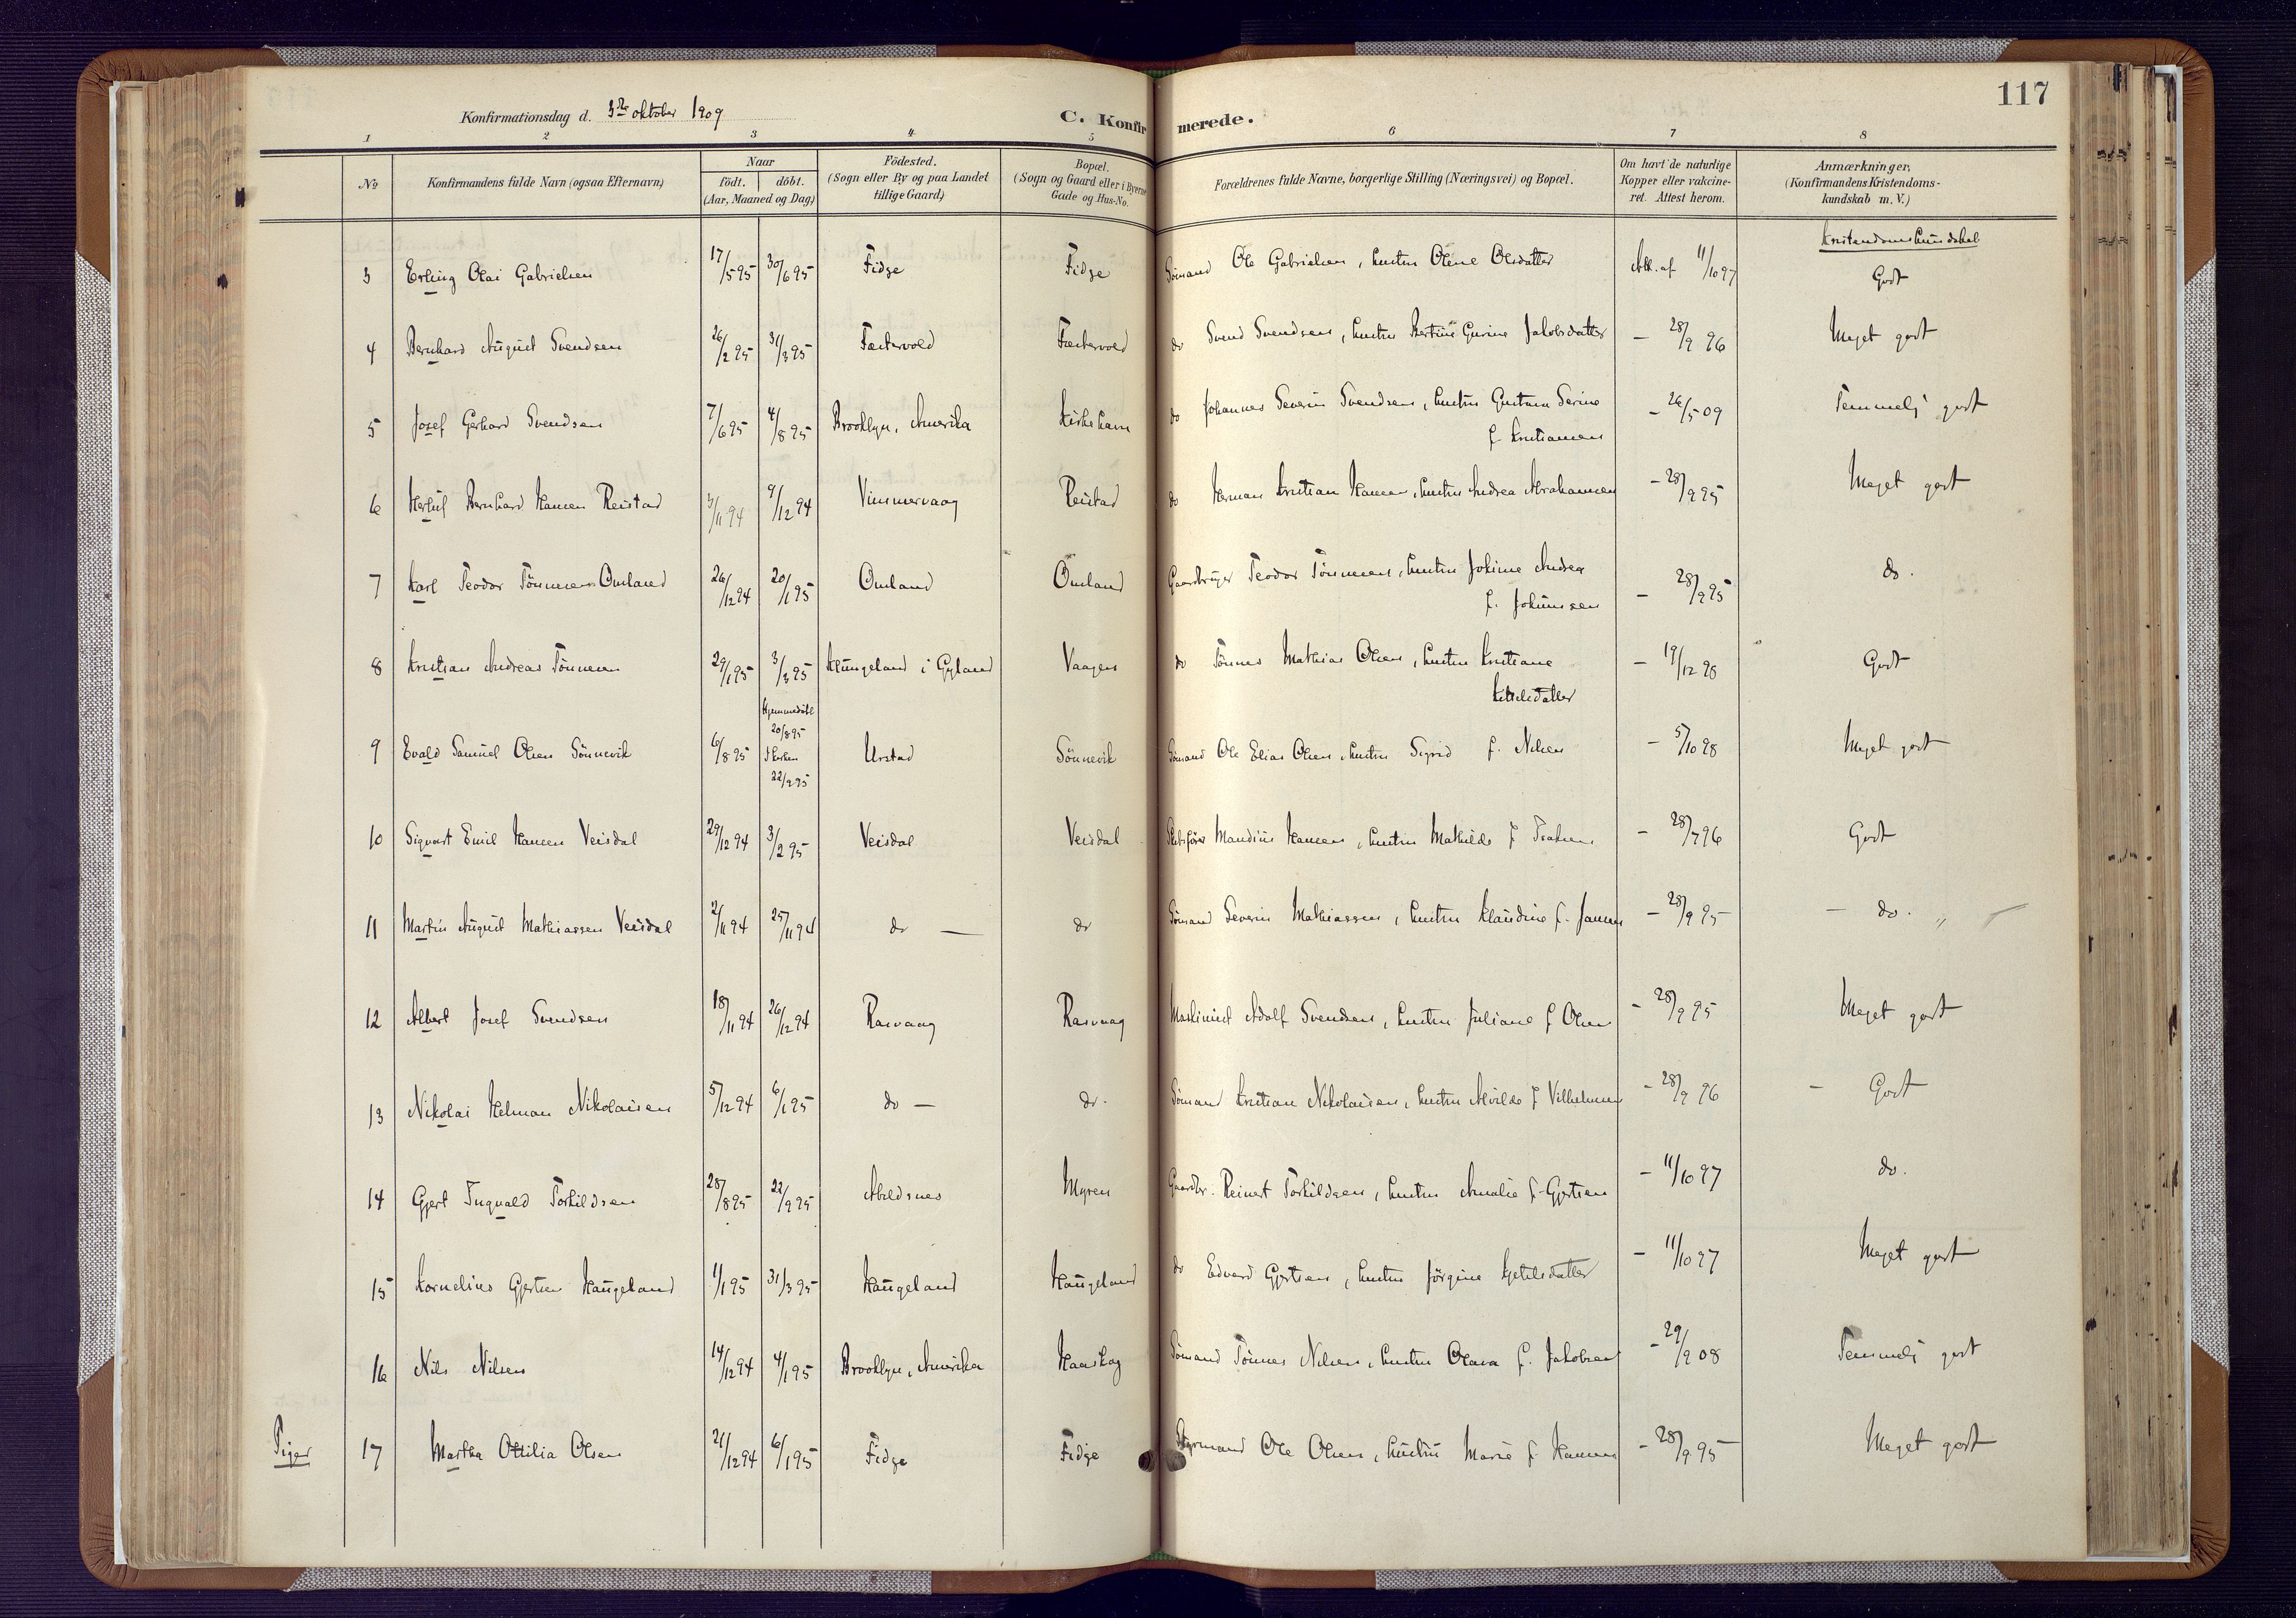 117
Konfirmationsdag d. 3die oktober 1909
C. Konfirmerede.
1 2 3 4 5 6 7 8
No
Konfirmandens fulde Navn (ogsaa Efternavn)
Naar
födt. döbt.
(Aar, Maaned og Dag)
Födested.
(Sogn eller By og paa Landet
tillige Gaard)
Bopæl.
(Sogn og Gaard eller i Byerne
Gade og Hus-No.
Forældrenes fulde Navne, borgerlige Stilling (Næringsvei) og Bopæl.
Om havt de naturlige
Kopper eller vakcine-
ret. Attest herom.
Anmærkninger,
(Konfirmandens Kristendoms-
kundskab m. V.)
Kristendomskundskab
3 Erling Olai Gabrielsen 17/5 95 30/6 95 Fidje Fidje Sömand Ole Gabrielsen, hustru Olene Olsdatter Att. af 11/10 97 Godt
4 Bernhard August Svendsen 26/2 95 31/3 95 do Svend Svendsen, hustru Bertine Gurine Jakobsdatter – 28/9 96 Meget godt
5 Josef Gerhard Svendsen 7/6 95 4/8 95 Brooklyn, Amerika Kirkehavn do Johannes Severin Svendsen, hustru Gustava Serine
f. Kristiansen – 26/5 09 Temmelig godt
6 Bernhard Hansen Reistad 3/11 94 9/12 94 Vinsnervaag Reistad do Herman Kristian Hansen, hustru Andrea Abrahamsen – 28/9 95 Meget godt
7 Karl Teodor Tönnesen Omland 26/12 94 20/1 95 Omland Omland Gaardbruger Teodor Tönnesen, hustru Jokime Andrea
f. Jokumsen – 28/9 95 do.
8 Kristian Andreas Tönnesen 29/1 95 3/3 95 i Gyland Vaagen do Tönnes Mathias Olsen, hustru Kristiane
Ketilsdatter – 19/12 98 Godt
Hjemmedöbt
20/8 95
9 Evald Samuel Olsen Sönnevik 6/8 95 i Kirken Urstad Sönnevik Sömand Ole Elias Olsen, hustru Sigrid f. Nilsen – 5/10 98 Meget godt
22/9 95
10 Sigvart Emil Hansen Veisdal 29/12 94 3/2 95 Veisdal Veisdal Skibsförer Mandius Hansen, hustru Mathilde f. – 28/7 96 Godt
11 Martin August Mathiassen Veisdal 2/11 94 25/11 94 do — do Sömand Severin Mathiassen, hustru Klaudine f. Jansen – 28/9 95 – do. „
12 Albert Josef Svendsen 18/11 94 26/12 94 Rasvaag Rasvaag Maskinist Adolf Svendsen, hustru Juliane f Olsen – 28/9 95 Meget godt
13 Nikolai Helman Nikolaisen 5/12 94 6/1 95 do — do. Sömand Kristian Nikolaisen, hustru Alvilde f Vilhelmsen – 28/9 96 – Godt
14 Gjert Ingvald Torkildsen 28/8 95 22/9 95 Abelsnes Myren Gaardbr. Reinert Torkildsen, hustru Amalie f. Gjertsen – 11/10 97 do.
15 Kornelius Gjertsen Haugeland 1/1 95 31/3 95 Haugeland Haugeland do Edvard Gjertsen, hustru Jörgine Kjetilsdatter – 11/10 97 Meget godt
16 Nils Nilsen 14/12 94 4/1 95 Brooklyn, Amerika Haaskog Sömand Tönnes Nilsen, hustru Olava f. Jakobsen – 29/9 08 Temmelig godt
Piger 17 Martha Ottilia Olsen 21/12 94 6/1 95 Fidje Fidje Styrmand Ole Olsen, hustru Marie f Hansen – 28/9 95 Meget godt